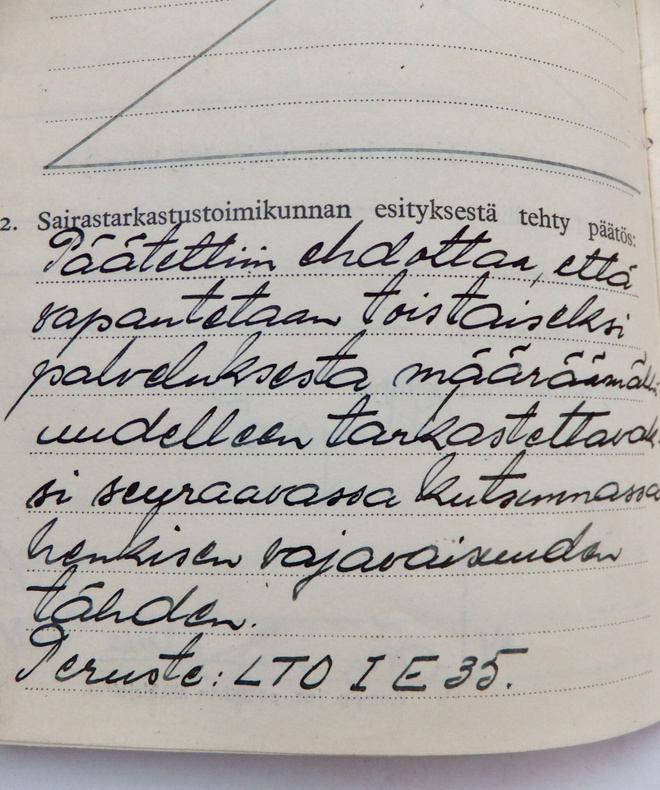 2. Sairastarkastustoimikunnan esityksestä tehty päätös:
Päätettiin ehdottaa, että
vapautetaan toistaiseksi
palveluksesta määräämällä
uudelleen tarkastettavak-
si seuraavassa kutsunnassa
henkisen vajavaisuuden
tähden.
Peruste: LTO I E 35.